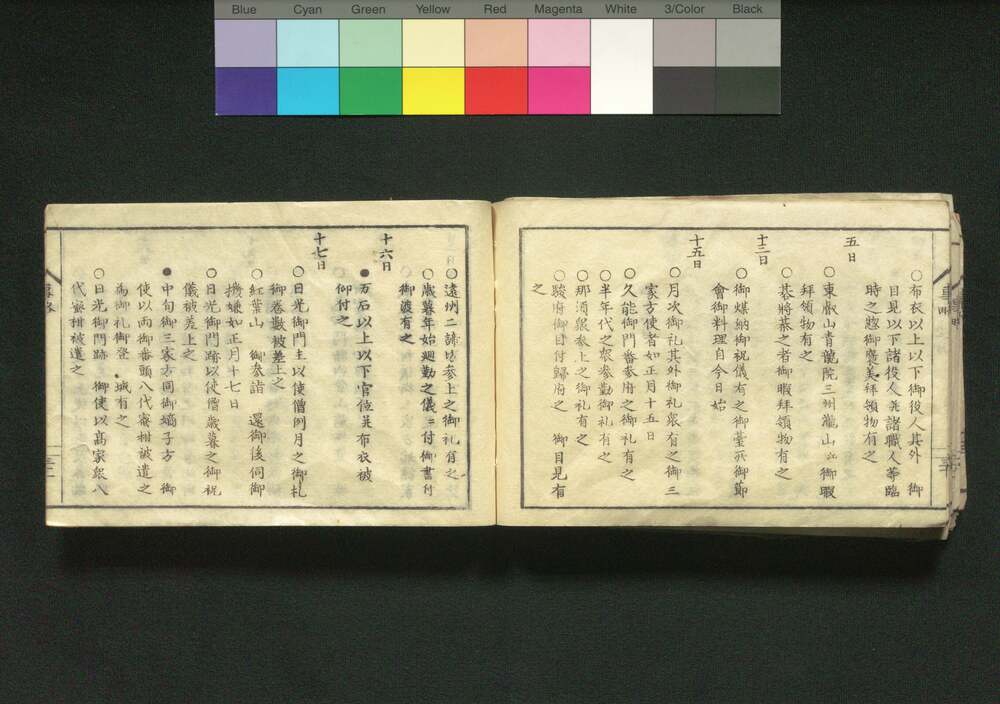 Blue Cyan Green Yellow Red Magenta White 3/Color Black
○布衣以上以下御役人其外 御
目見以下諸役人并諸職人等臨
時之御褒美拝領物有之
五日
○東叡山青龍院三州瀧山 御暇
拝領物有之
○碁將棊之者御暇拝領物有之
十三日
○御煤納御祝儀有之御臺所御節
會御料理自今日始
十五日
○月次御礼其外御礼衆有之御三
家方使者如正月十五日
○久能御門番参府之御礼有之
○半年代之衆参勤御礼有之
○那須衆参上之御礼有之
○駿府御目付歸府之 御目見有
之
○遠州二諦坊参上之御礼有之
○歳暮年始廻勤之儀ニ付御書付
御渡有之
十六日
●万石以上以下官位并布衣被
仰付之
十七日
○日光御門主以使僧例月之御札
御巻數被差上之
○紅葉山 御参詣 還御後伺御
機嫌如正月十七日
○日光御門跡以使僧歳暮之御祝
儀被差上之
●中旬御三家方同御嫡子方 御
使以両御番頭八代蜜柑被遣之
為御礼御登 城有之
○日光御門跡 御使以高家衆八
代蜜柑被遣之